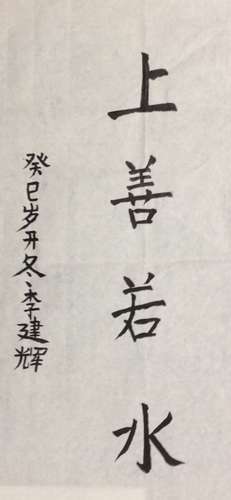 上善若水
癸巳岁开冬李建辉